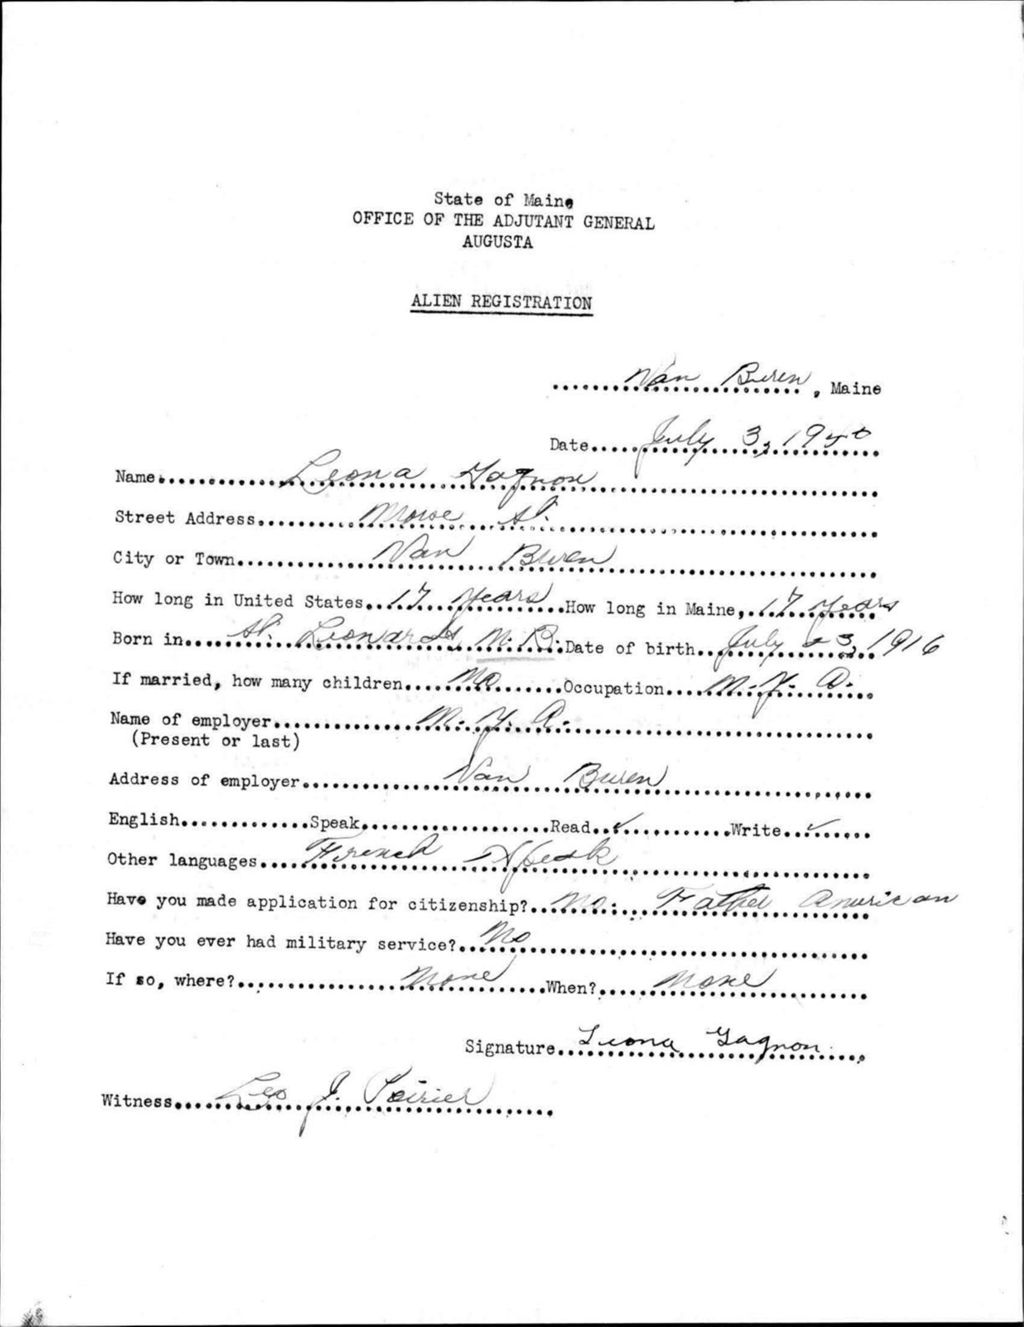 State of Maine
OFFICE OF THE ADJUTANT GENERAL
AUGUSTA
ALIEN REGISTRATION
Van Buren, Maine
Date July 3, 1940
Name Leona Gagnon
Street Address St.
City or Town Van Buren
How long in United States 17 Years How long in Maine, 17 Years
Born in St. Leonards N. B. Date of birth July 1916
If married, how many children No Occupation N. Y. A.
Name of employer N. Y. A.
(Present or last)
Address of employer Van Buren
English Speak Read ✓ Write ✓
Other languages French Speak
Have you made application for citizenship? No: Father American
Have you ever had military service? No
If so, where? None When? None
Signature Leona Gagnon
Witness Leo J. Poirier